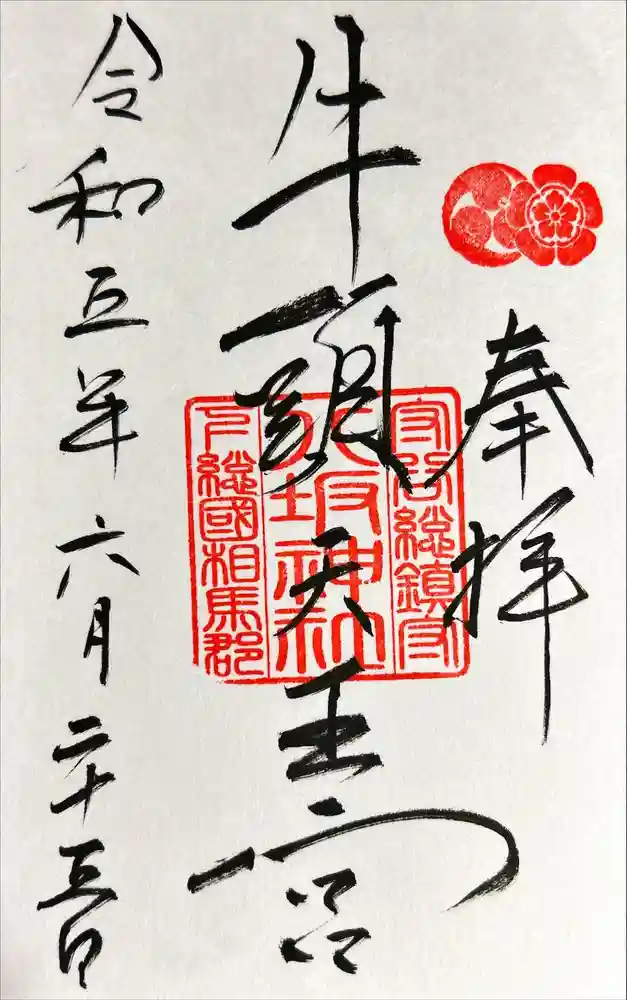 奉拝
牛頭天王宮
守谷総鎮守
八坂神社
下総國相馬郡
令和五年六月二十五日